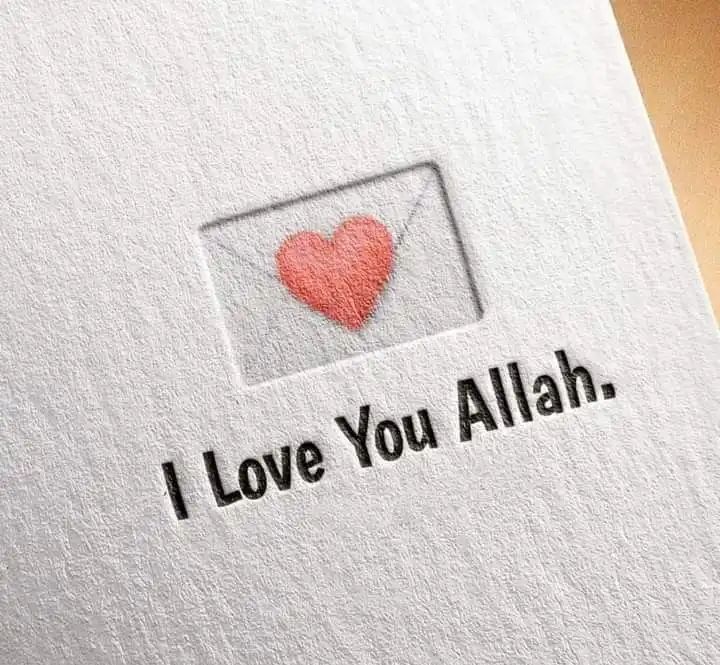 I Love You Allah.